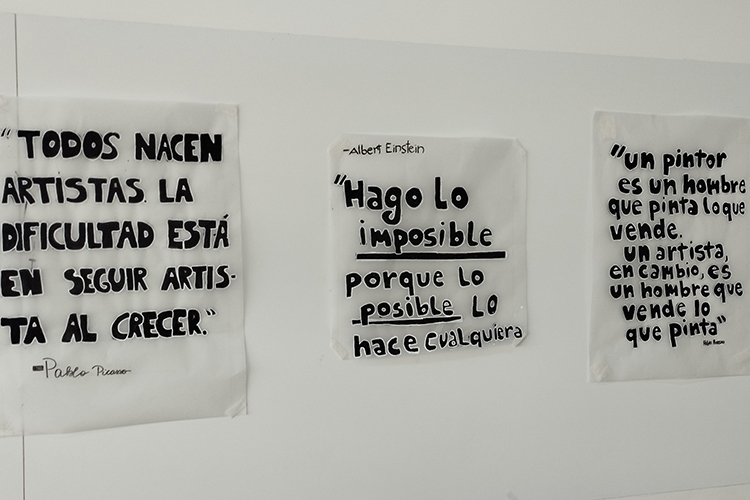 "TODOS NACEN
ARTISTAS. LA
DIFICULTAD ESTÁ
EN SEGUIR ARTIS-
TA AL CRECER."
Pablo Picasso
-Albert Einstein
"Hago lo
imposible
porque lo
posible LO
hace cualquiera
"un pintor
es un hombre
que pinta lo que
vende.
un artista,
en cambio, es
un hombre que
vende lo
que pinta"
Pablo Picasso